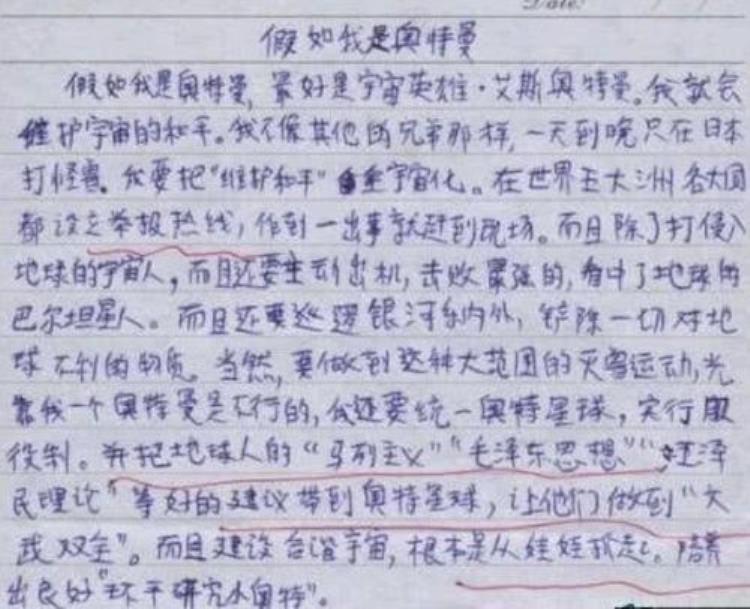 Date:
假如我是奥特曼
假如我是奥特曼，最好是宇宙英雄·艾斯奥特曼。我就会
维护宇宙的和平。我不像其他的兄弟那样，一天到晚只在日本
打怪兽。我要把“维护和平”全宇宙化。在世界五大洲各大国
都设立举报热线，作到一出事就赶到现场。而且除了打侵入
地球的宇宙人，而且还要主动出机，击败最强的，看中了地球的
巴尔坦星人。而且还要巡逻银河系内外，铲除一切对地
球不利的物质。当然，要做到这种大范围的灭害运动，光
靠我一个奥特曼是不行的，我还要统一奥特星球，实行服
役制。并把地球人的“马列主义”“毛泽东思想”“江泽
民理论”等好的建议带到奥特星球，让他们做到“文
武双全”。而且建设合谐宇宙，根本是从娃娃抓起。培养
出良好“环平研究小奥特”。